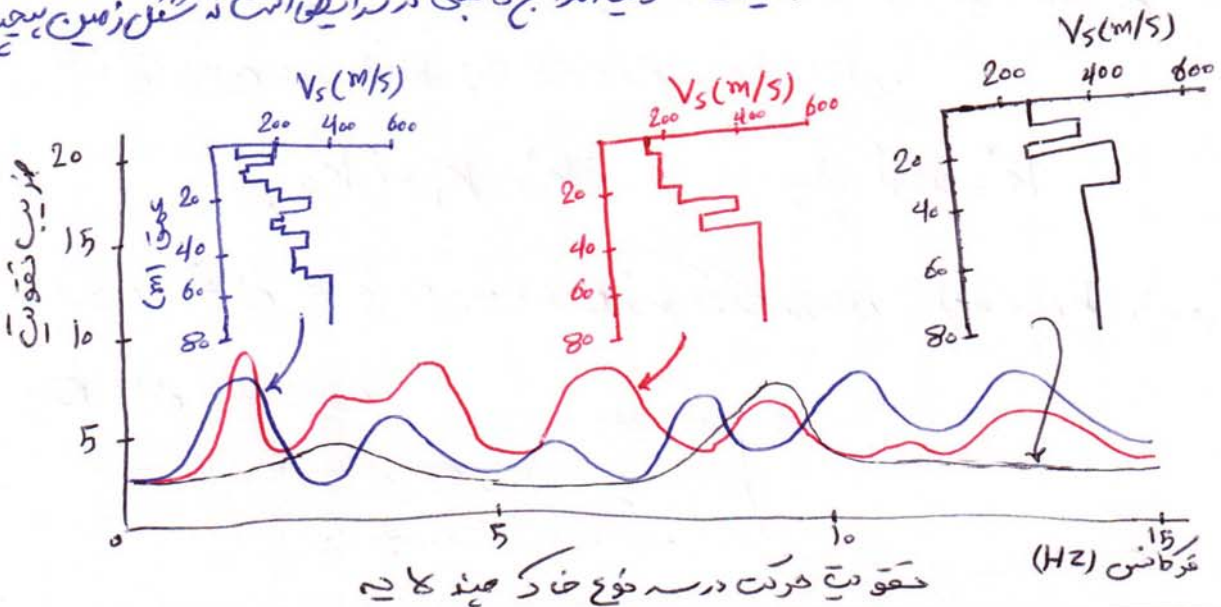 در شرایطی است که شکل زمین پیچیده
Vs (m/s)
200 400 600
20
40
60
80
عمق (m)
Vs (m/s)
200 400 600
20
40
60
80
Vs (m/s)
200 400 600
20
40
60
80
ضریب تقویت
20
15
10
5
0 5 10 15
فرکانس (HZ)
تقویت حرکت در سه نوع خاک چند لایه